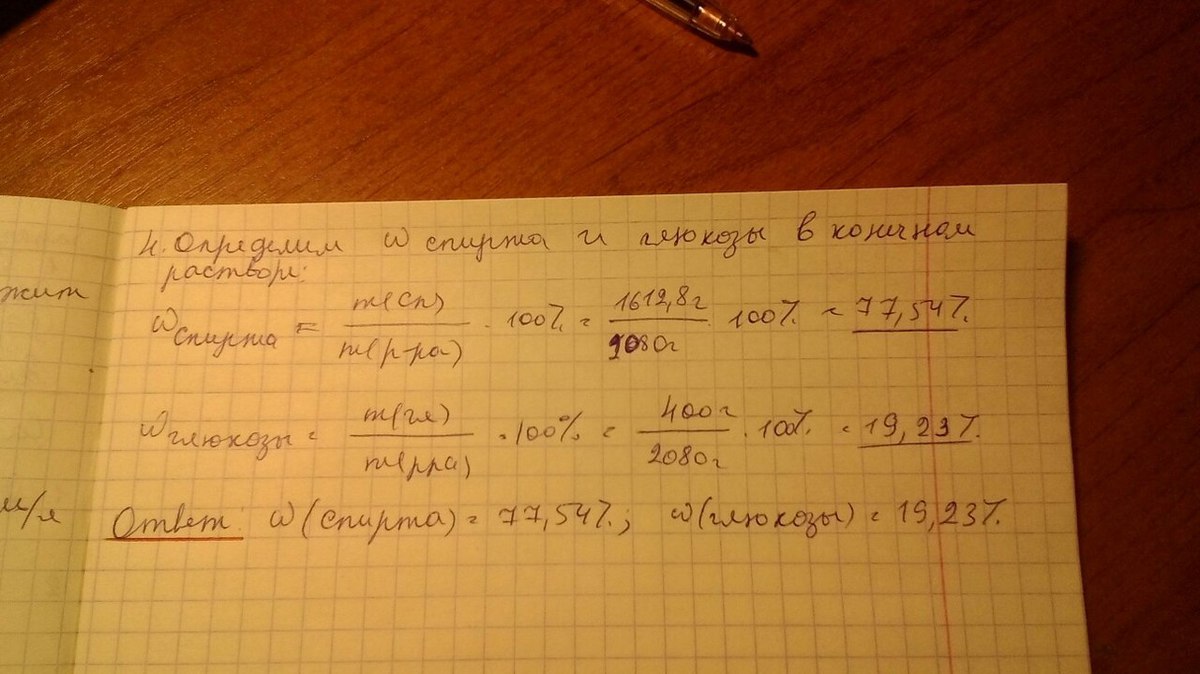 4. Определим ω спирта и глюкозы в конечном
растворе:
жит
ω спирта = m(сп) / m(р-ра) · 100% = 1612,8г / 2080г · 100% = 77,54%.
ω глюкозы = m(гл) / m(рра) · 100% = 400г / 2080г · 100% = 19,23%.
м/л
Ответ: ω(спирта) = 77,54%; ω(глюкозы) = 19,23%.